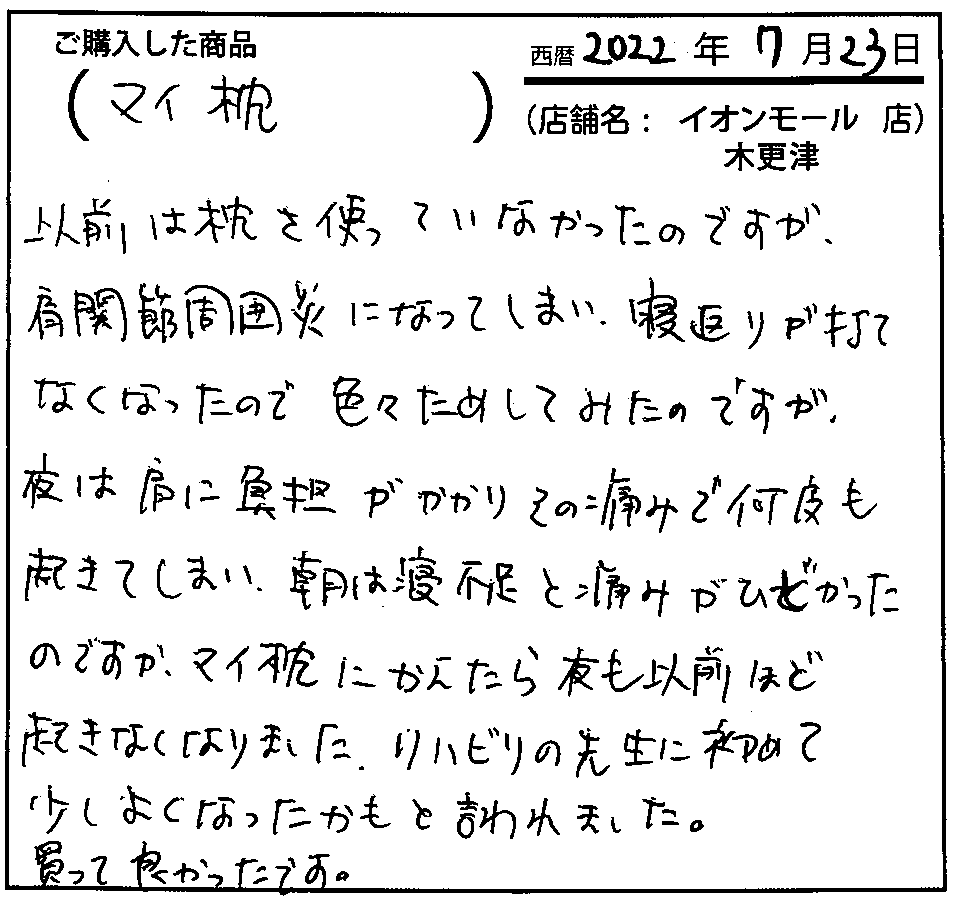 ご購入した商品
(マイ枕)
西暦2022年7月23日
(店舗名：イオンモール 店)
木更津
以前は枕を使っていなかったのですが、
肩関節周囲炎になってしまい、寝返りが打て
なくなったので色々ためしてみたのですが、
夜は肩に負担がかかりその痛みで何度も
起きてしまい、朝は寝不足と痛みがひどかった
のですが、マイ枕にかえたら夜も以前ほど
起きなくなりました。リハビリの先生に初めて
少しよくなったかもと言われました。
買って良かったです。